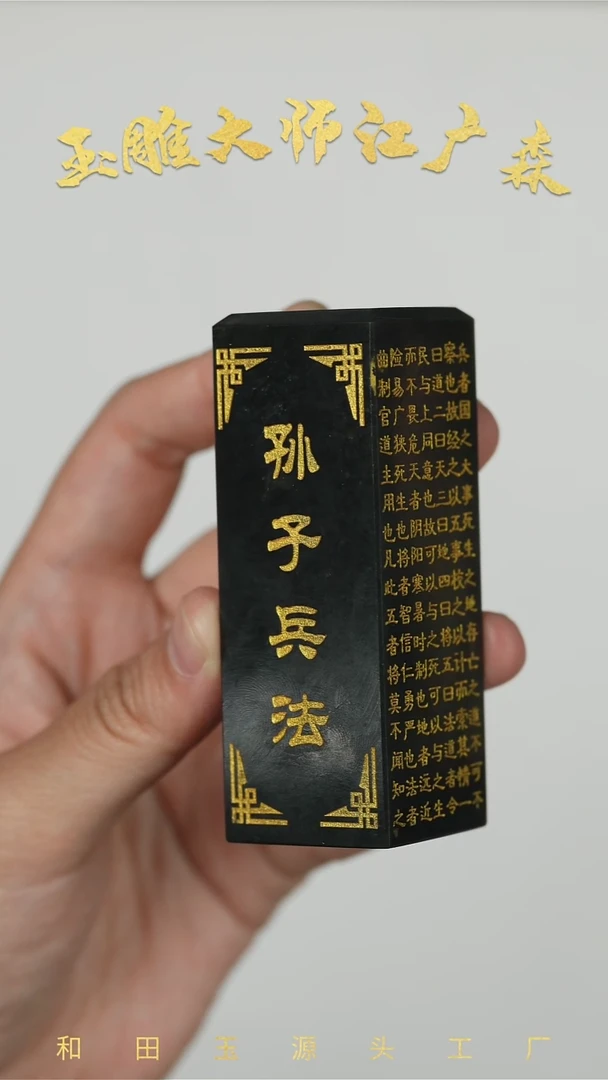 玉雕大师江广森
孙子兵法
兵者国之大事死生之地存亡之道不可不
察也故经之以五事校之以计而索其情一
曰道二曰天三曰地四曰将五曰法道者令
民与上同意也故可以与之死可以与之生
亦不畏危天者阴阳寒暑时制也地者远近
险易广狭死生也将者智信仁勇严也法者
曲制官道主用也凡此五者将莫不闻知之
和田玉源头工厂